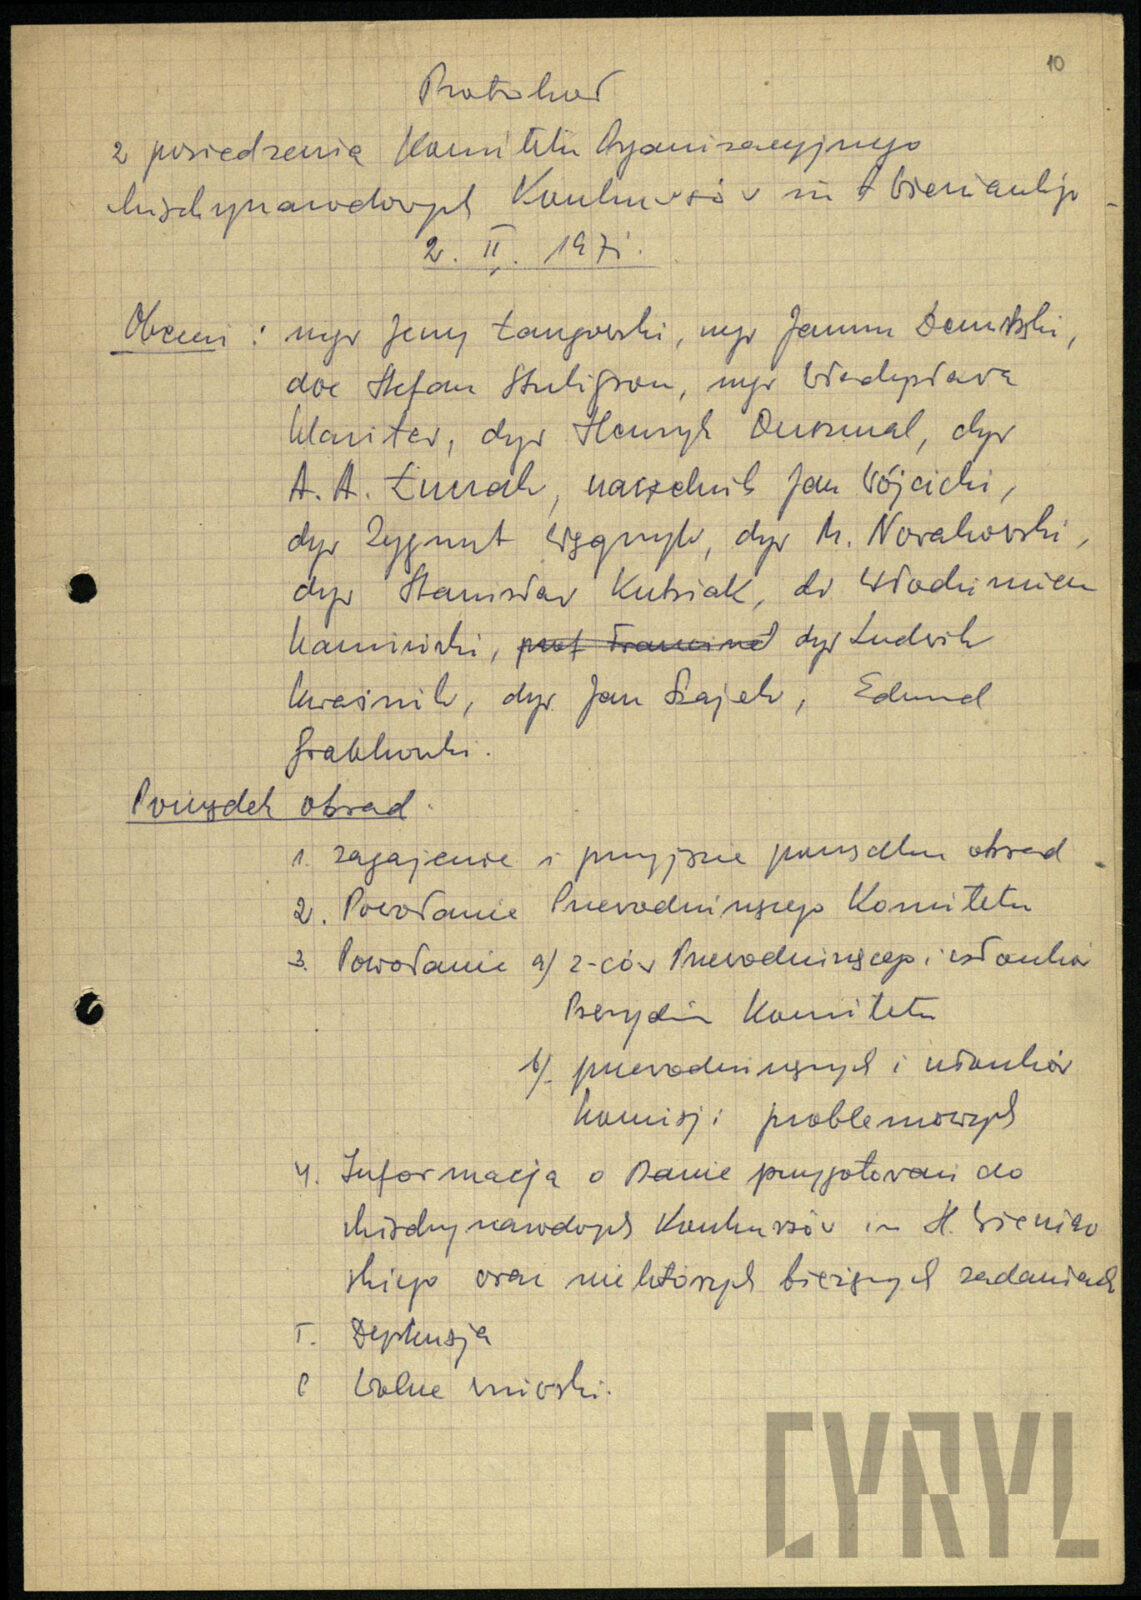 10
Protokoł
z posiedzenia Komitetu Organizacyjnego
Międzynarodowych Konkursów im H Wieniawskiego
2. II. 1971.
Obecni: mgr Jerzy Łangowski, mgr Janina
doc Stefan Stuligrosz, mgr Władysława
dyr Henryk Duczmal, dyr
A. A. naczelnik Jan Wójcicki,
dyr Zygmunt dyr M. Nowakowski,
dyr Stanisław Kubiak, dr Włodzimierz
Kamiński, prof Franciszek dyr Ludwik
Kwaśnik, dyr. Jan Szajek, Edmund
Grabkowski.
Porządek obrad.
1. zagajenie i przyjęcie porządku obrad
2. Powołanie Przewodniczącego Komitetu
3. Powołanie a) z-ców Przewodniczącego i członków
Prezydium Komitetu
b) przewodniczących i członków
komisji problemowych
4. Informacja o stanie przygotowań do
Międzynarodowych Konkursów im H. Wieniaw
skiego oraz niektórych bieżących zadaniach
5. Dyskusja
6 Wolne wnioski.
CYRYL